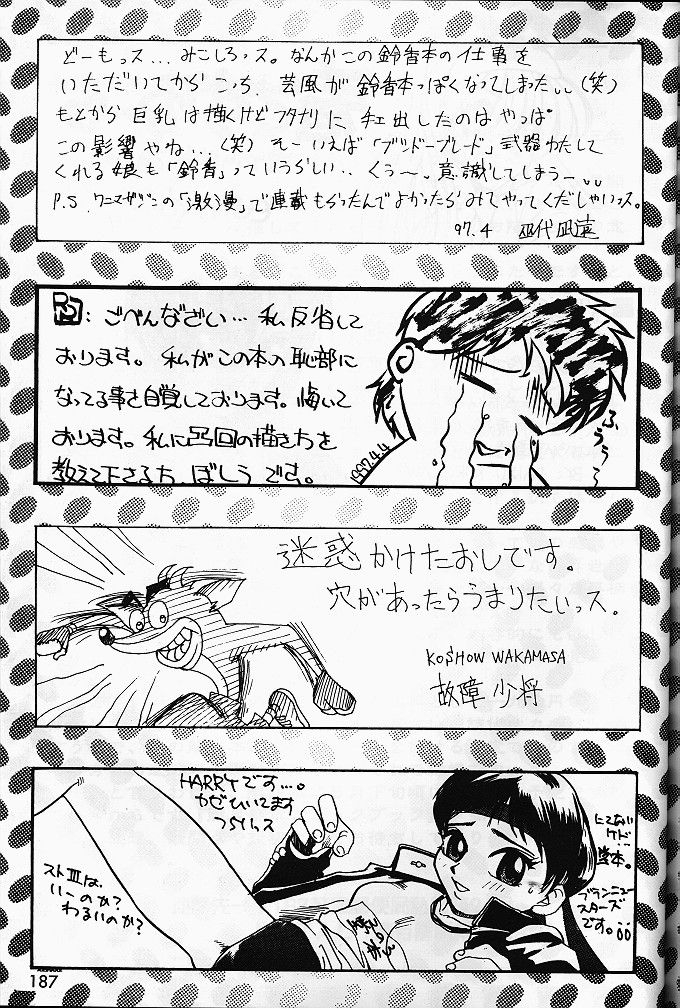 どーもっス…みこしろっス。なんかこの鈴香本の仕事を
いただいてからこっち、芸風が鈴香本っぽくなってしまった（笑）
もとから巨乳は描くけどフタナリに手出したのはやっぱ
この影響やね…（笑）そーいえば「ブシドーブレード」武器わたして
くれる娘も「鈴香」っていうらしい‥くぅ〜、意識してしまうー
P.S ワニマガジンの「激漫」で連載もらったんでよかったらみてやってくだしゃいっス。
97.4
ごべんなざい…私反省して
おります。私がこの本の恥部に
なってる事を自覚しております。悔いて
おります。私に凸凹の描き方を
教えて下さる方、ぼしうです。
1997.4.4
ふぅぅ〜
迷惑かけたおしです。
穴があったらうまりたいっス。
KOSHOW WAKAMASA
故障少将
HARRYです…。
かぜひいてます
つらいっス
にてない
ケド
ブランニュー
スターズ
です。
ストⅢは
いーのか？
わるいのか？
187